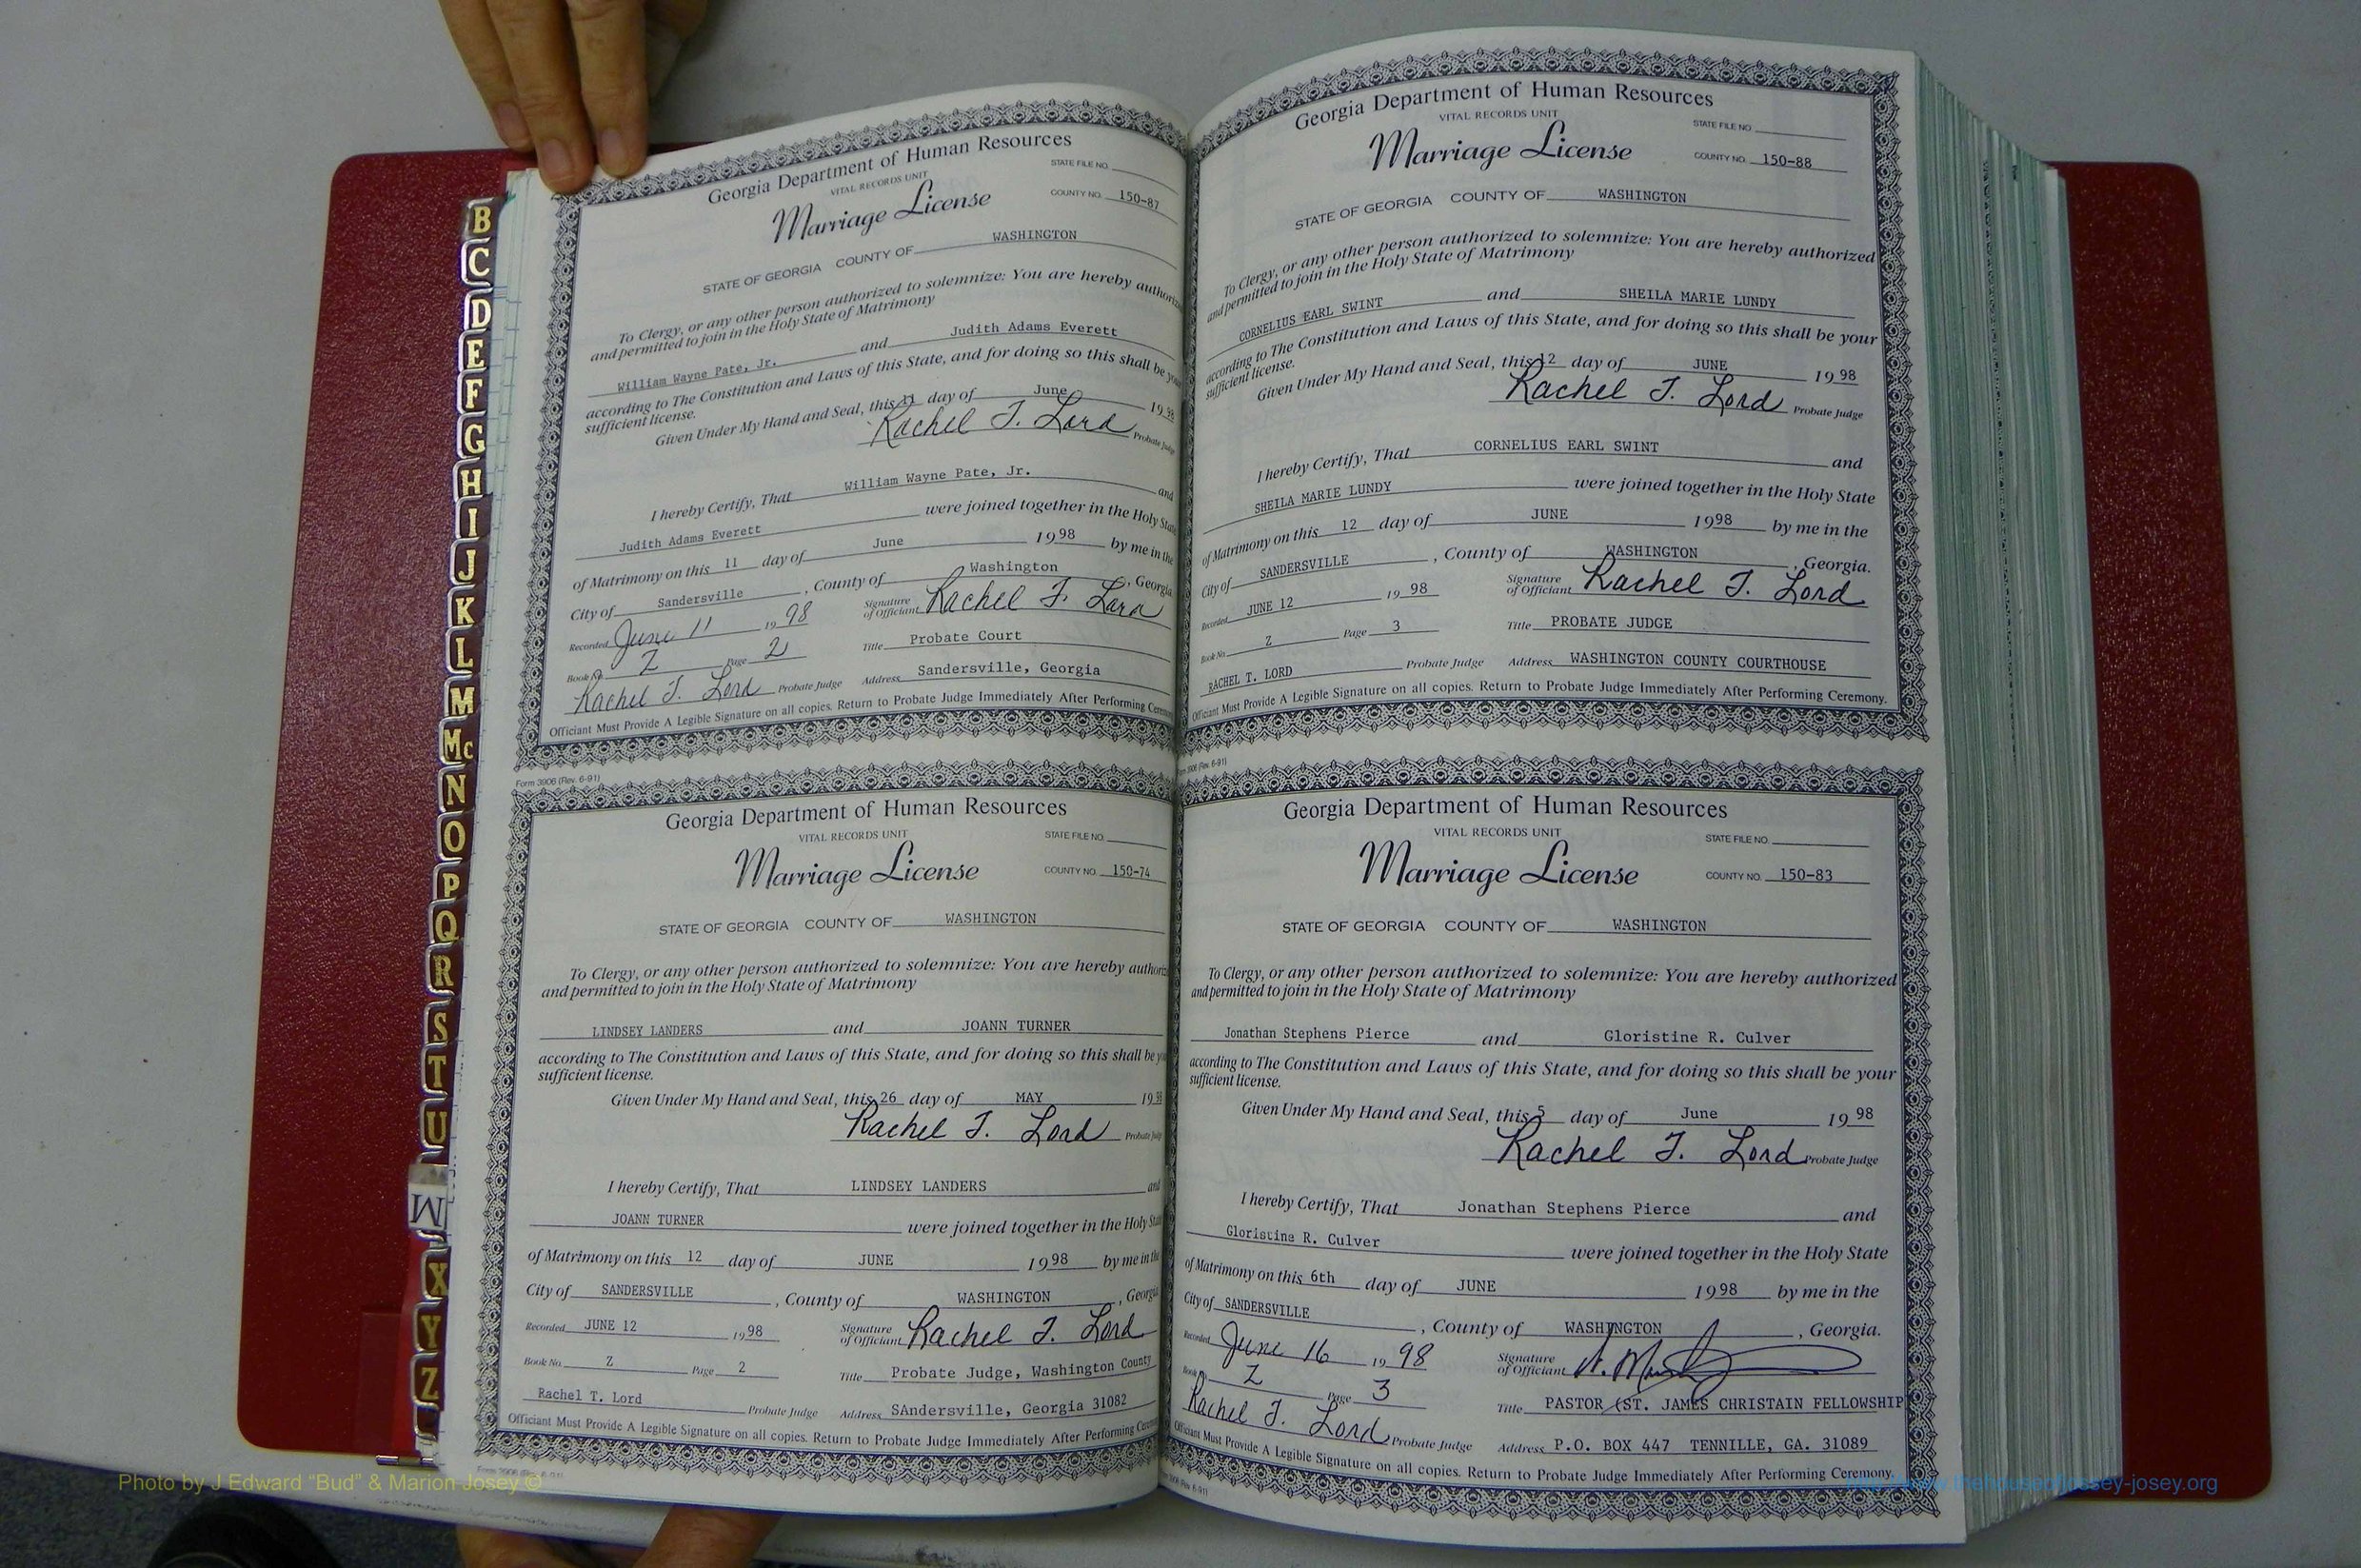 B
C
D
E
F
G
H
I
J
K
L
M
Mc
N
O
P
Q
R
S
T
U
M
X
Y
Z
Georgia Department of Human Resources
VITAL RECORDS UNIT
STATE FILE NO.
Marriage License
COUNTY NO. 150-87
STATE OF GEORGIA COUNTY OF WASHINGTON
To Clergy, or any other person authorized to solemnize: You are hereby
and permitted to join in the Holy State of Matrimony
William Wayne Pate, Jr. and Judith Adams Everett
according to The Constitution and Laws of this State, and for doing so this shall be
sufficient license.
Given Under My Hand and Seal, this 11 day of June 1998
Rachel T. Lord Probate Judge
I hereby Certify, That William Wayne Pate, Jr. and
Judith Adams Everett were joined together in the Holy State
of Matrimony on this 11 day of June 1998 by me in the
City of Sandersville, County of Washington, Georgia
Recorded June 11 1998 Signature of Officiant Rachel T. Lord
Book No. Z Page 2 Title Probate Court
Rachel T. Lord Probate Judge Address Sandersville, Georgia
Officiant Must Provide A Legible Signature on all copies. Return to Probate Judge Immediately After Performing
Form 3906 (Rev. 6-91)
Georgia Department of Human Resources
VITAL RECORDS UNIT
STATE FILE NO.
Marriage License
COUNTY NO. 150-74
STATE OF GEORGIA COUNTY OF WASHINGTON
To Clergy, or any other person authorized to solemnize: You are hereby
and permitted to join in the Holy State of Matrimony
LINDSEY LANDERS and JOANN TURNER
according to The Constitution and Laws of this State, and for doing so this shall be
sufficient license.
Given Under My Hand and Seal, this 26 day of MAY 1998
Rachel T. Lord Probate
I hereby Certify, That LINDSEY LANDERS and
JOANN TURNER were joined together in the Holy
of Matrimony on this 12 day of JUNE 1998 by me in the
City of SANDERSVILLE, County of WASHINGTON, Georgia
Recorded JUNE 12 1998 Signature of Officiant Rachel T. Lord
Book No. Z Page 2 Title Probate Judge, Washington County
Rachel T. Lord Probate Judge Address SAndersville, Georgia 31082
Officiant Must Provide A Legible Signature on all copies. Return to Probate Judge Immediately After Performing
Georgia Department of Human Resources
VITAL RECORDS UNIT
STATE FILE NO.
Marriage License
COUNTY NO. 150-88
STATE OF GEORGIA COUNTY OF WASHINGTON
To Clergy, or any other person authorized to solemnize: You are hereby authorized
and permitted to join in the Holy State of Matrimony
CORNELIUS EARL SWINT and SHEILA MARIE LUNDY
according to The Constitution and Laws of this State, and for doing so this shall be your
sufficient license.
Given Under My Hand and Seal, this 12 day of JUNE 1998
Rachel T. Lord Probate Judge
I hereby Certify, That CORNELIUS EARL SWINT and
SHEILA MARIE LUNDY were joined together in the Holy State
of Matrimony on this 12 day of JUNE 1998 by me in the
City of SANDERSVILLE, County of WASHINGTON, Georgia.
Recorded JUNE 12 1998 Signature of Officiant Rachel T. Lord
Book No. Z Page 3 Title PROBATE JUDGE
RACHEL T. LORD Probate Judge Address WASHINGTON COUNTY COURTHOUSE
Officiant Must Provide A Legible Signature on all copies. Return to Probate Judge Immediately After Performing Ceremony.
Form 3906 (Rev. 6-91)
Georgia Department of Human Resources
VITAL RECORDS UNIT
STATE FILE NO.
Marriage License
COUNTY NO. 150-83
STATE OF GEORGIA COUNTY OF WASHINGTON
To Clergy, or any other person authorized to solemnize: You are hereby authorized
and permitted to join in the Holy State of Matrimony
Jonathan Stephens Pierce and Gloristine R. Culver
according to The Constitution and Laws of this State, and for doing so this shall be your
sufficient license.
Given Under My Hand and Seal, this 5 day of June 1998
Rachel T. Lord Probate Judge
I hereby Certify, That Jonathan Stephens Pierce and
Gloristine R. Culver were joined together in the Holy State
of Matrimony on this 6th day of JUNE 1998 by me in the
City of SANDERSVILLE, County of WASHINGTON, Georgia.
Recorded June 16 1998 Signature of Officiant
Book No. Z Page 3 Title PASTOR (ST. JAMES CHRISTAIN FELLOWSHIP
Rachel T. Lord Probate Judge Address P.O. BOX 447 TENNILLE, GA. 31089
Officiant Must Provide A Legible Signature on all copies. Return to Probate Judge Immediately After Performing Ceremony.
Photo by J Edward "Bud" & Marion Josey ©